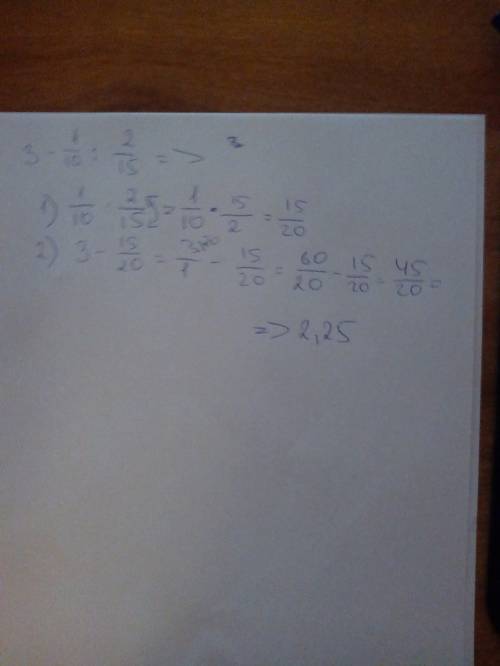 3 - 1/10 : 2/15 =>
1) 1/10 : 2/15 = 1/10 · 15/2 = 15/20
2) 3 - 15/20 = 3/1 - 15/20 = 60/20 - 15/20 = 45/20 =
=> 2,25